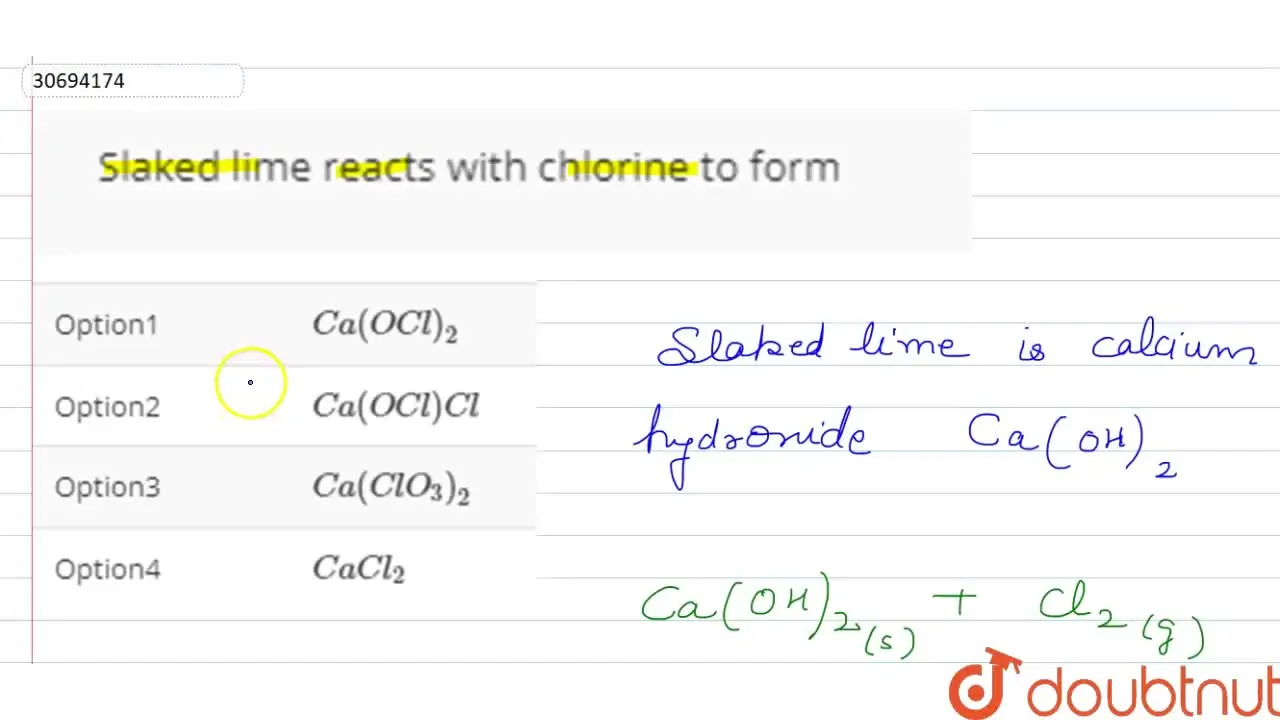 30694174
Slaked lime reacts with chlorine to form
Option1 Ca(OCl)₂
Option2 Ca(OCl)Cl
Option3 Ca(ClO₃)₂
Option4 CaCl₂
Slaked lime is calcium
hydroxide Ca(OH)₂
Ca(OH)₂(s) + Cl₂(g)
doubtnut